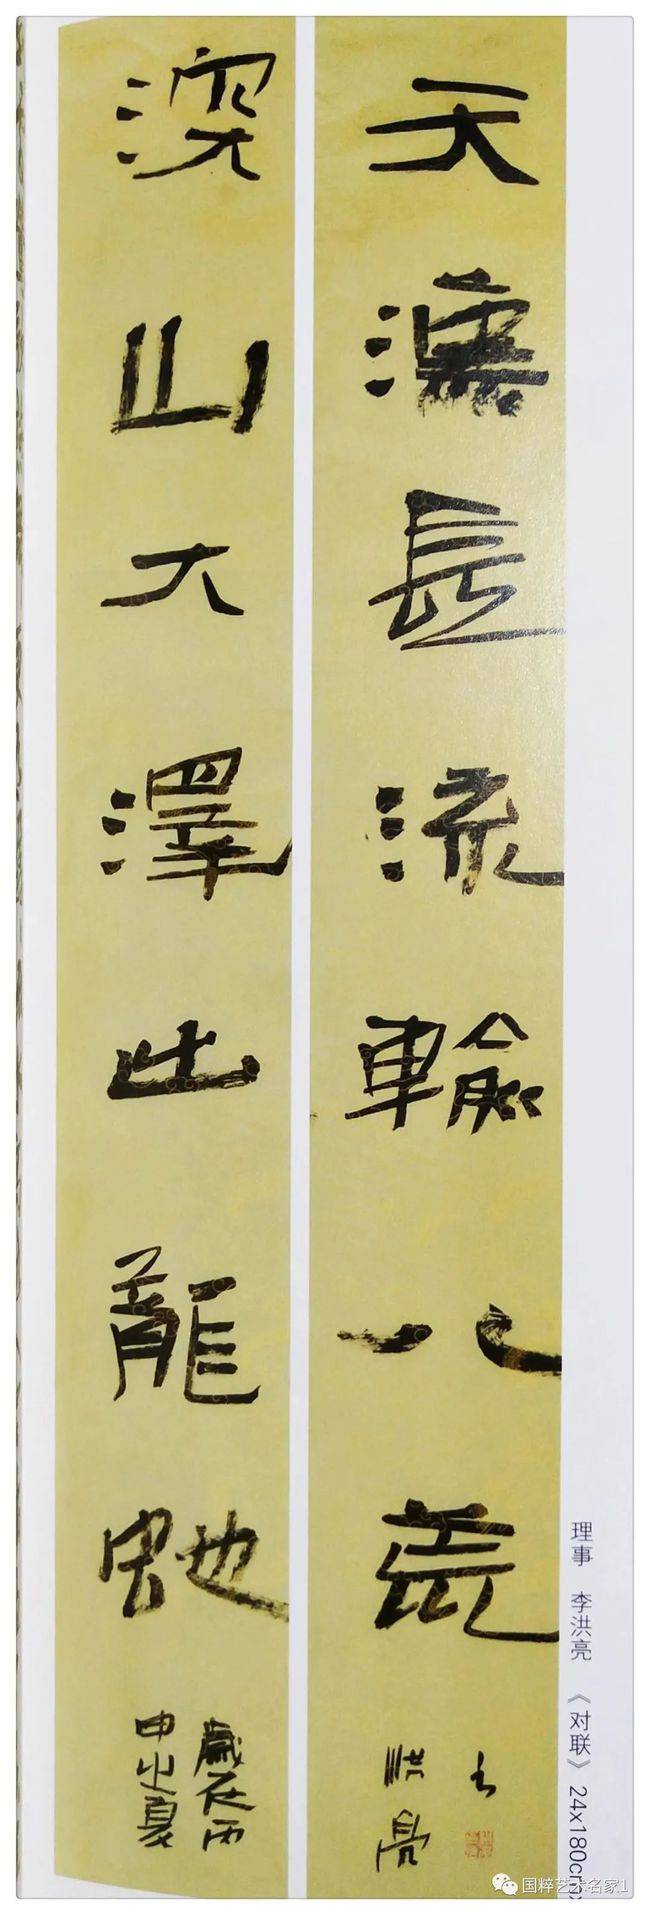 天長流輸八荒
洪亮
深山大澤出龍蛇
歲在丙
申之夏
理事 李洪亮 《对联》 24x180cmx
国粹艺术名家1